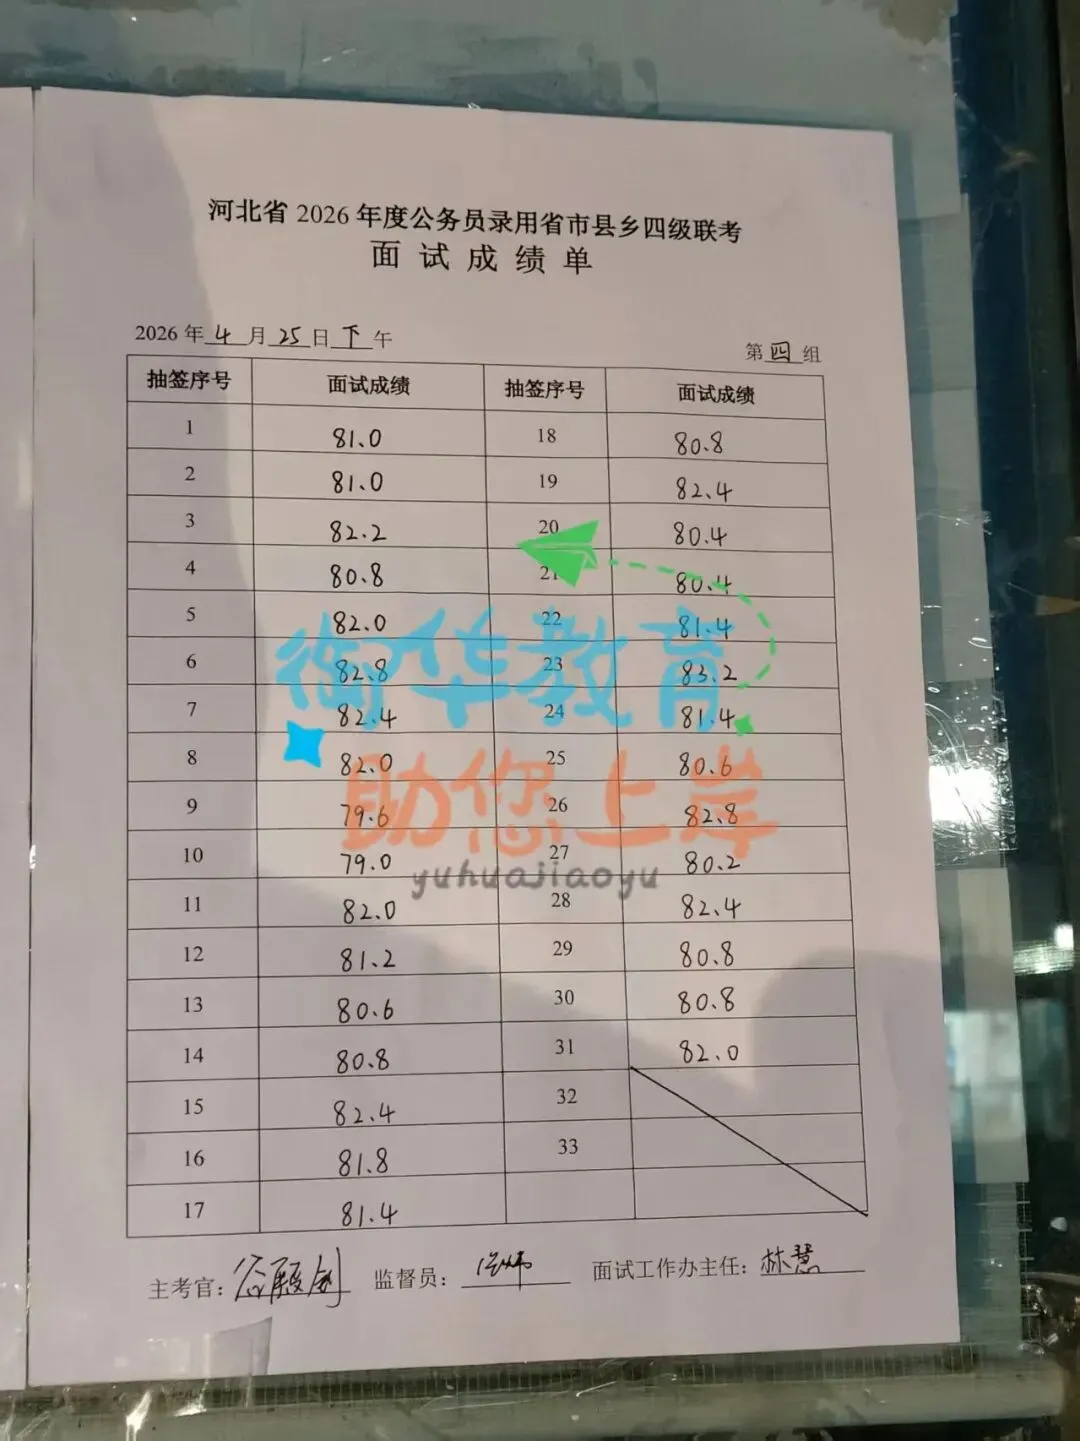 河北省 2026 年度公务员录用省市县乡四级联考
面试成绩单
2026 年 4 月 25 日 下 午
第 四 组
抽签序号 面试成绩 抽签序号 面试成绩
1 81.0 18 80.8
2 81.0 19 82.4
3 82.2 20 80.4
4 80.8 21 80.4
5 82.0 22 81.4
6 82.8 23 83.2
7 82.4 24 81.4
8 82.0 25 80.6
9 79.6 26 82.8
10 79.0 27 80.2
11 82.0 28 82.4
12 81.2 29 80.8
13 80.6 30 80.8
14 80.8 31 82.0
15 82.4 32
16 81.8 33
17 81.4
华教育
助您上岸
yuhuajiaoyu
主考官: 监督员: 面试工作办主任: 林慧